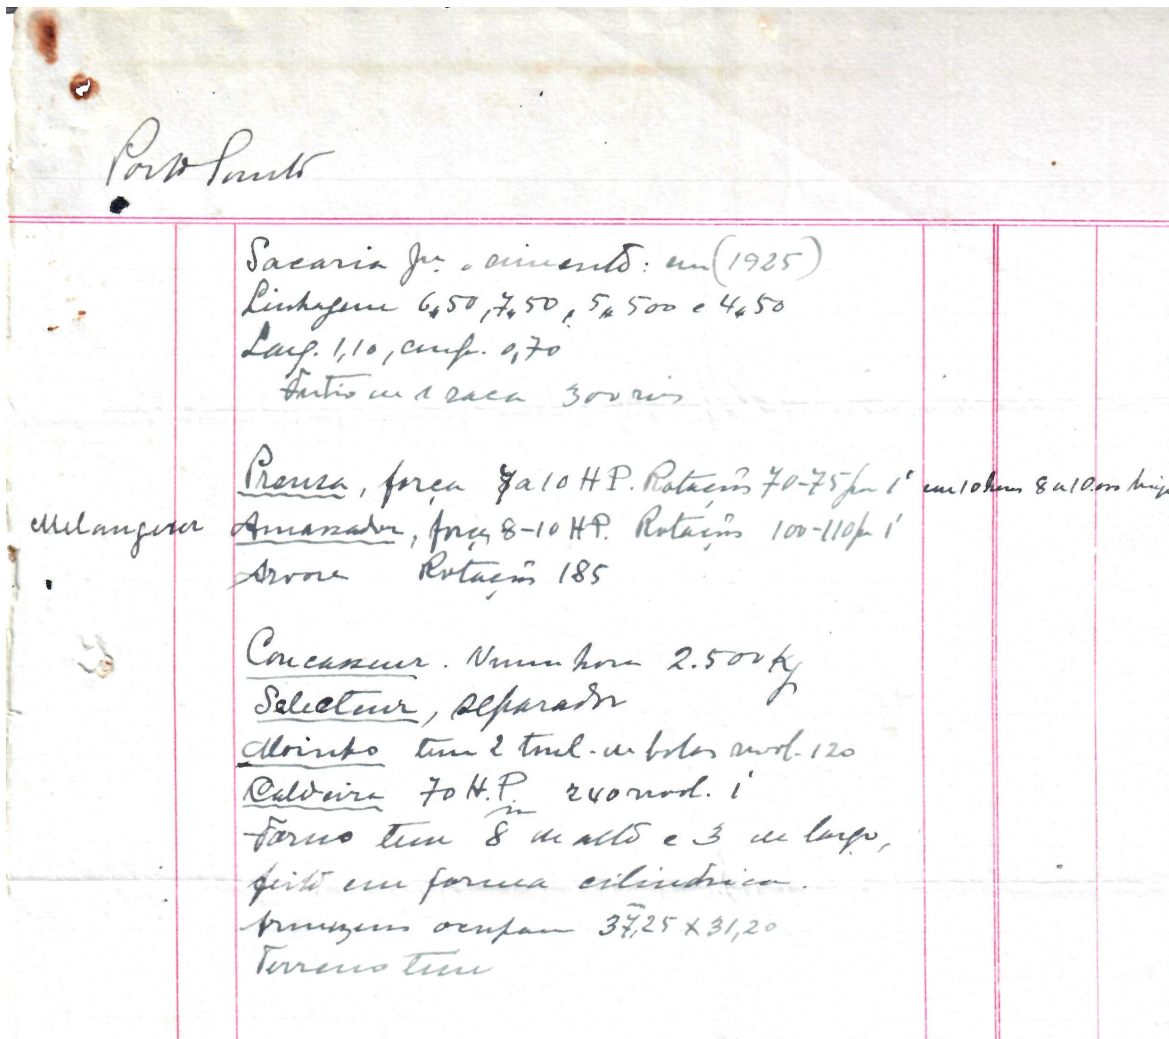 Porto Santo
Sacaria pª. cimento: em (1925)
Linhagem 6,50, 7,50, 5,500 e 4,50
Larg. 1,10, comp. 0,70
Feitio de 1 saca 300 reis
Prensa, força 7 a 10 HP. Rotação 70-75 por 1' em 10 horas 8 a 10.000
Melangeur Amassador, força 8-10 HP. Rotação 100-110 p. 1'
Arvore Rotação 185
Concasseur. Numa hora 2.500 Kg
Selecteur, separador
Moinho tem 2 tonel. de bolas revol. 120
Caldeira 70 H.P. 240 revol. 1'
Forno tem 8 m de alto e 3 de largo,
feito em forma cilindrica.
Armazens ocupam 37,25 X 31,20
Terreno tem